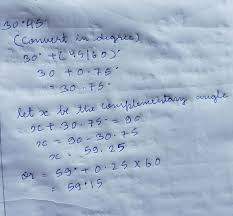 30°45'
(Convert in degree)
30° + (45/60)°
30 + 0.75°
= 30.75°
let x be the complementary angle
x + 30.75° = 90
x = 90 - 30.75
x = 59.25
or = 59° + 0.25 × 60
= 59°15